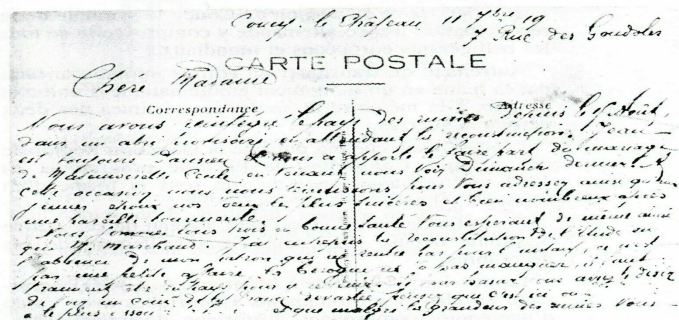 Coucy le Château 11 7bre 19
7 Rue des Gondoles
CARTE POSTALE
Chère Madame
Correspondance Adresse
Nous avons réintégré le pays des ruines depuis le Août,
dans un abri provisoire, en attendant la reconstruction. Jean
est toujours Parisien et nous a apporté le faire part du mariage
de Mademoiselle Cécile en venant nous voir Dimanche dernier. A
cette occasion nous nous réunissons pour vous adresser ainsi qu'aux
jeunes époux nos vœux les plus sincères et bien nombreux après
une pareille tourmente.
Nous sommes tous trois en bonne santé vous espérant de même ainsi
que M. Marchand. J'ai entrepris la reconstitution de l'Etude en
l'absence de mon patron qui ne rentre pas pour l'instant, ce n'est
pas une petite affaire la besogne ne manque, il faut
vraiment être du pays pour y revenir et si par hasard vous aviez le désir
de voir un coin de la France dévastée, pensez que c'est ici
le plus et que malgré la grandeur des ruines vous